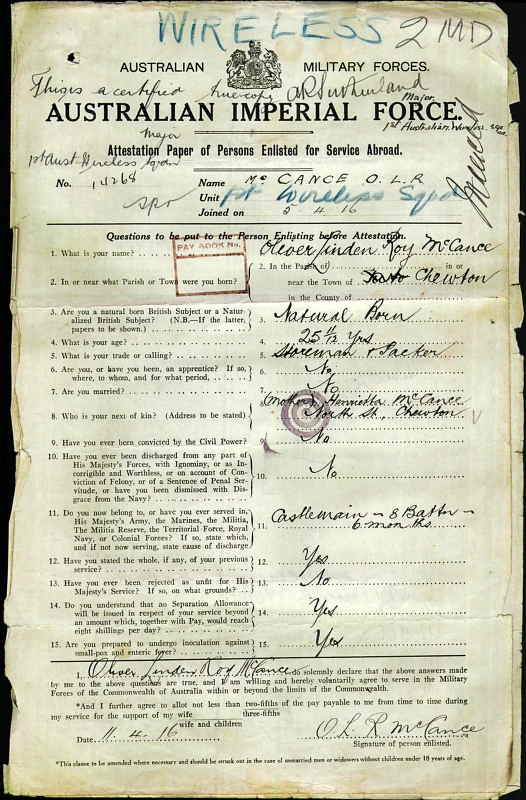 WIRELESS 2 MD
AUSTRALIAN MILITARY FORCES.
This is a certified true copy A R Sutherland
Major
AUSTRALIAN IMPERIAL FORCE.
1st Australian Wireless Sqn
Major
Attestation Paper of Persons Enlisted for Service Abroad.
1st Aust Wireless Sqdn
No. 14268 Name McCANCE O. L. R
Spr Unit 1st Wireless Sqd
Joined on 5 4. 16
Questions to be put to the Person Enlisting before Attestation.
PAY BOOK No.
1. What is your name? 1. Oliver Linden Roy McCance
2. In or near what Parish or Town were you born? 2. In the Parish of in or
near the Town of Chewton
in the County of
3. Are you a natural born British Subject or a Natur-
alized British Subject? (N.B.—If the latter,
papers to be shown.) 3. Natural Born
4. What is your age? 4. 25 11/12 Yrs
5. What is your trade or calling? 5. Storeman & Packer
6. Are you, or have you been, an apprentice? If so,
where, to whom, and for what period, 6. No
7. Are you married? 7. No
8. Who is your next of kin? (Address to be stated) 8. (Mother) Henrietta McCance
North St, Chewton
9. Have you ever been convicted by the Civil Power? 9. No
10. Have you ever been discharged from any part of
His Majesty's Forces, with Ignominy, or as In-
corrigible and Worthless, or on account of Con-
viction of Felony, or of a Sentence of Penal Ser-
vitude, or have you been dismissed with Dis-
grace from the Navy? 10. No
11. Do you now belong to, or have you ever served in,
His Majesty's Army, the Marines, the Militia,
The Militia Reserve, the Territorial Force, Royal
Navy, or Colonial Forces? If so, state which,
and if not now serving, state cause of discharge 11. Castlemain - 8 Battn -
6 months
12. Have you stated the whole, if any, of your previous
service? 12. Yes
13. Have you ever been rejected as unfit for His
Majesty's Service? If so, on what grounds? 13. No
14. Do you understand that no Separation Allowance
will be issued in respect of your service beyond
an amount which, together with Pay, would reach
eight shillings per day? 14. Yes
15. Are you prepared to undergo inoculation against
small-pox and enteric fever? 15. Yes
I, Oliver Linden Roy McCance do solemnly declare that the above answers made
by me to the above questions are true, and I am willing and hereby voluntarily agree to serve in the Military
Forces of the Commonwealth of Australia within or beyond the limits of the Commonwealth.
*And I further agree to allot not less than two-fifths of the pay payable to me from time to time during
my service for the support of my wife three-fifths
wife and children
Date 11. 4. 16 O L R McCance
Signature of person enlisted.
*This clause to be amended where necessary and should be struck out in the case of unmarried men or widowers without children under 18 years of age.